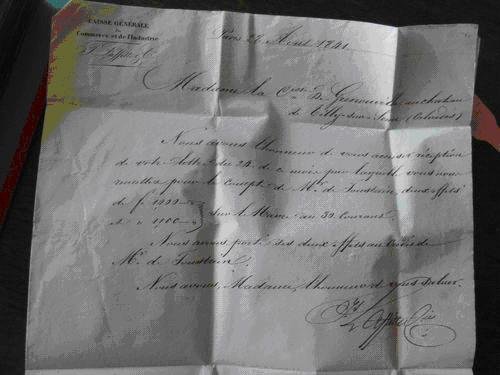 CAISSE GÉNÉRALE
du
Commerce et de l'Industrie
J. Laffitte & Cie
Paris 26 Août 1841
Madame la Ctesse De au chateau
de Tilly-sur-Seine (Calvados)
Nous avons l'honneur de vous accuser réception
de votre lettre du 24 de ce mois par laquelle vous nous
remettez pour le compte de Mr de Toustain, deux effets
de f 1999
et " 1100 sur le Havre au 30 courant.
Nous avons porté ces deux effets au crédit de
Mr de Toustain.
Nous avons, Madame, l'honneur de vous saluer.
J Laffitte & Cie